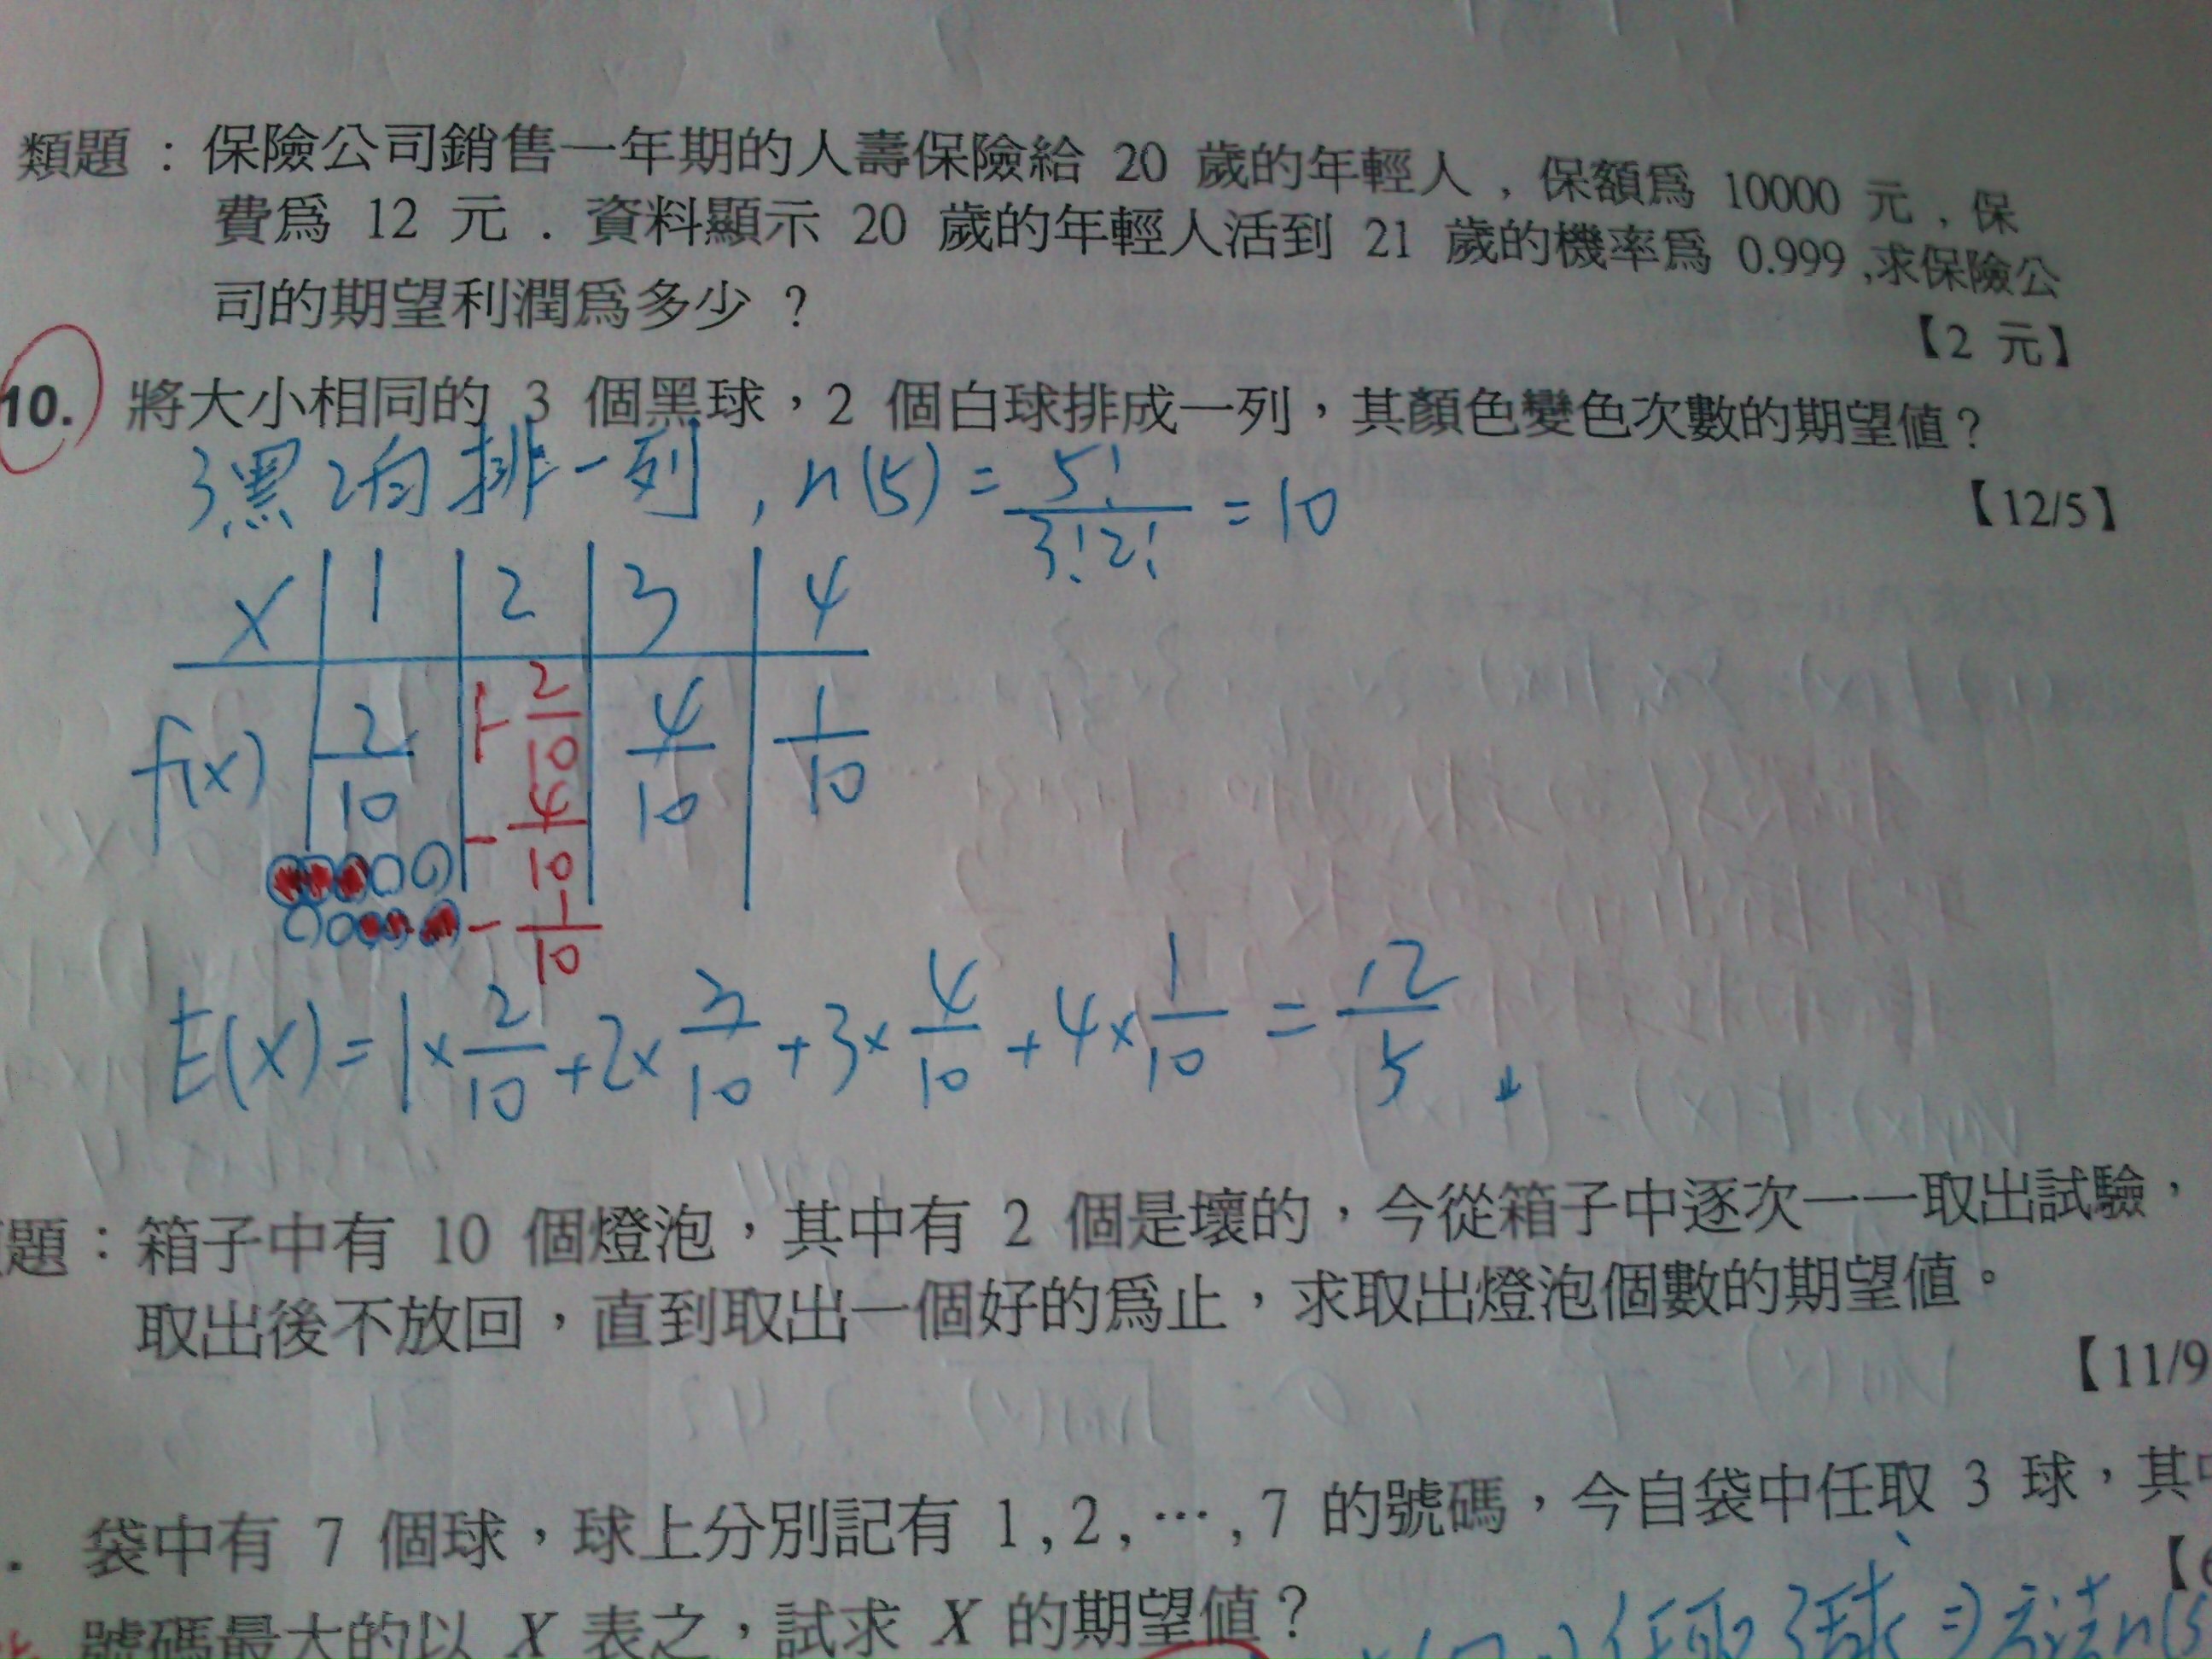 類題：保險公司銷售一年期的人壽保險給 20 歲的年輕人，保額爲 10000 元，保
費爲 12 元．資料顯示 20 歲的年輕人活到 21 歲的機率爲 0.999,求保險公
司的期望利潤爲多少？
【2 元】
10. 將大小相同的 3 個黑球，2 個白球排成一列，其顏色變色次數的期望值？
【12/5】
3黑2白排一列, n(5) = 5!/3!2! = 10
x 1 2 3 4
f(x) 2/10 1-2/10-4/10-1/10 4/10 1/10
E(x) = 1×2/10+2×3/10+3×4/10+4×1/10=12/5
題：箱子中有 10 個燈泡，其中有 2 個是壞的，今從箱子中逐次一一取出試驗，
取出後不放回，直到取出一個好的爲止，求取出燈泡個數的期望值。
【11/9
. 袋中有 7 個球，球上分別記有 1 , 2 , … , 7 的號碼，今自袋中任取 3 球，其中
【6
號碼最大的以 X 表之，試求 X 的期望值？
任取3球⇒方法n(5